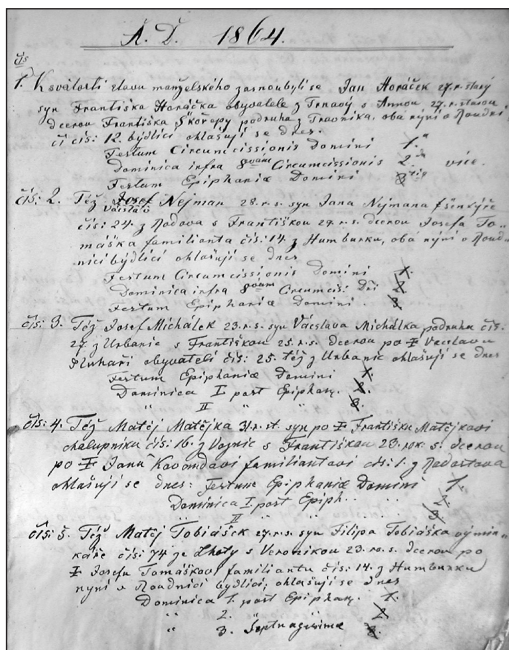 A. D. 1864.
čís
1. K svátosti stavu manželského zasnoubyli se Jan Horáček 27. r. starý
syn Františka Horáčka obyvatele z Trnavy s Annou, 27. r. starou
dcerou Františka Škořepy podruha z Travníka, oba nýní v Roudni
ci čís: 12. bydlící ohlašují se dnes.
Festum Circumcissionis Domini 1.
Dominica infra 8vam Circumcissionis 2. více.
Festum Epiphaniae Domini 3.
čís: 2. Též Josef Nejman 28. r. s. syn Jana Nejmana
Václav
čís: 24 z s Františkou 27. r. s. dcerou Josefa To-
máška familianta čís: 14. z Humburku, oba nýní v Roud
nici bydlící ohlašují se dnes
Festum Circumcissionis Domini 1.
Dominica infra 8vam Circumcis: Dei 2.
Festum Epiphaniae Domini. 3.
čís: 3. Též Josef Michálek 23. r. s. syn Václava Michálka podruha čís:
27 z Urbanic s Františkou 25. r. s. dcerou po ‡ Václavu
Pluhaři obyvateli čís: 25. též z Urbanic ohlašují se dnes
Festum Epiphaniae Domini 1.
Dominica I post Epiphan. 2.
" II " " 3.
čís: 4. Též Matěj Matějka 31. r. st. syn po ‡ Františku Matějkovi
chalupníku čís: 16. z Vojnic s Františkou 23. rok. s. dcerou
po ‡ Janu familiantovi čís: 1. z
ohlašují se dnes: Festum Epiphaniae Domini 1.
Dominica I post Epiph. 2.
" II " 3.
čís: 5. Též Matěj Tobiášek 27. r. s. syn Filipa Tobiáška výmin-
kaře čís: 74 ze Lhoty s Veronikou 23. ro. s. dcerou po
‡ Josefu Tomáškovi familiantu čís: 14. z Humburku
nyní v Roudnici bydlící, ohlašují se dnes
Dominica 1. post Epiphan. 1.
" 2. " 2.
" 3. Septuagesima 3.